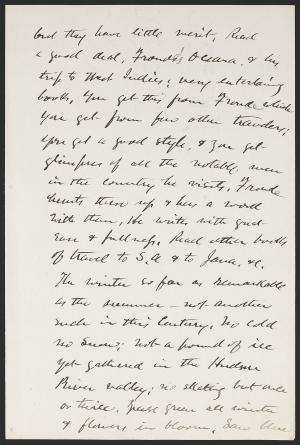 but they have little merit. Read
a good deal, Froude's Oceana, & his
trip to West Indies; very entertaining
books. You get this from Froude which
you get from few other travelers;
you get a good style, & you get
glimpses of all the notable men
in the country he visits. Froude
hunts these up & has a word
with them. He writes with great
ease & fullness. Read other books
of travel to S.A. & to Java. &c.
The winter so far as remarkable
as the summer — not another
such in this Century. No cold
no snow; not a pound of ice
yet gathered in the Hudson
River valley; no skating but once
or twice. Grass green all winter
& flowers in bloom. Saw blue